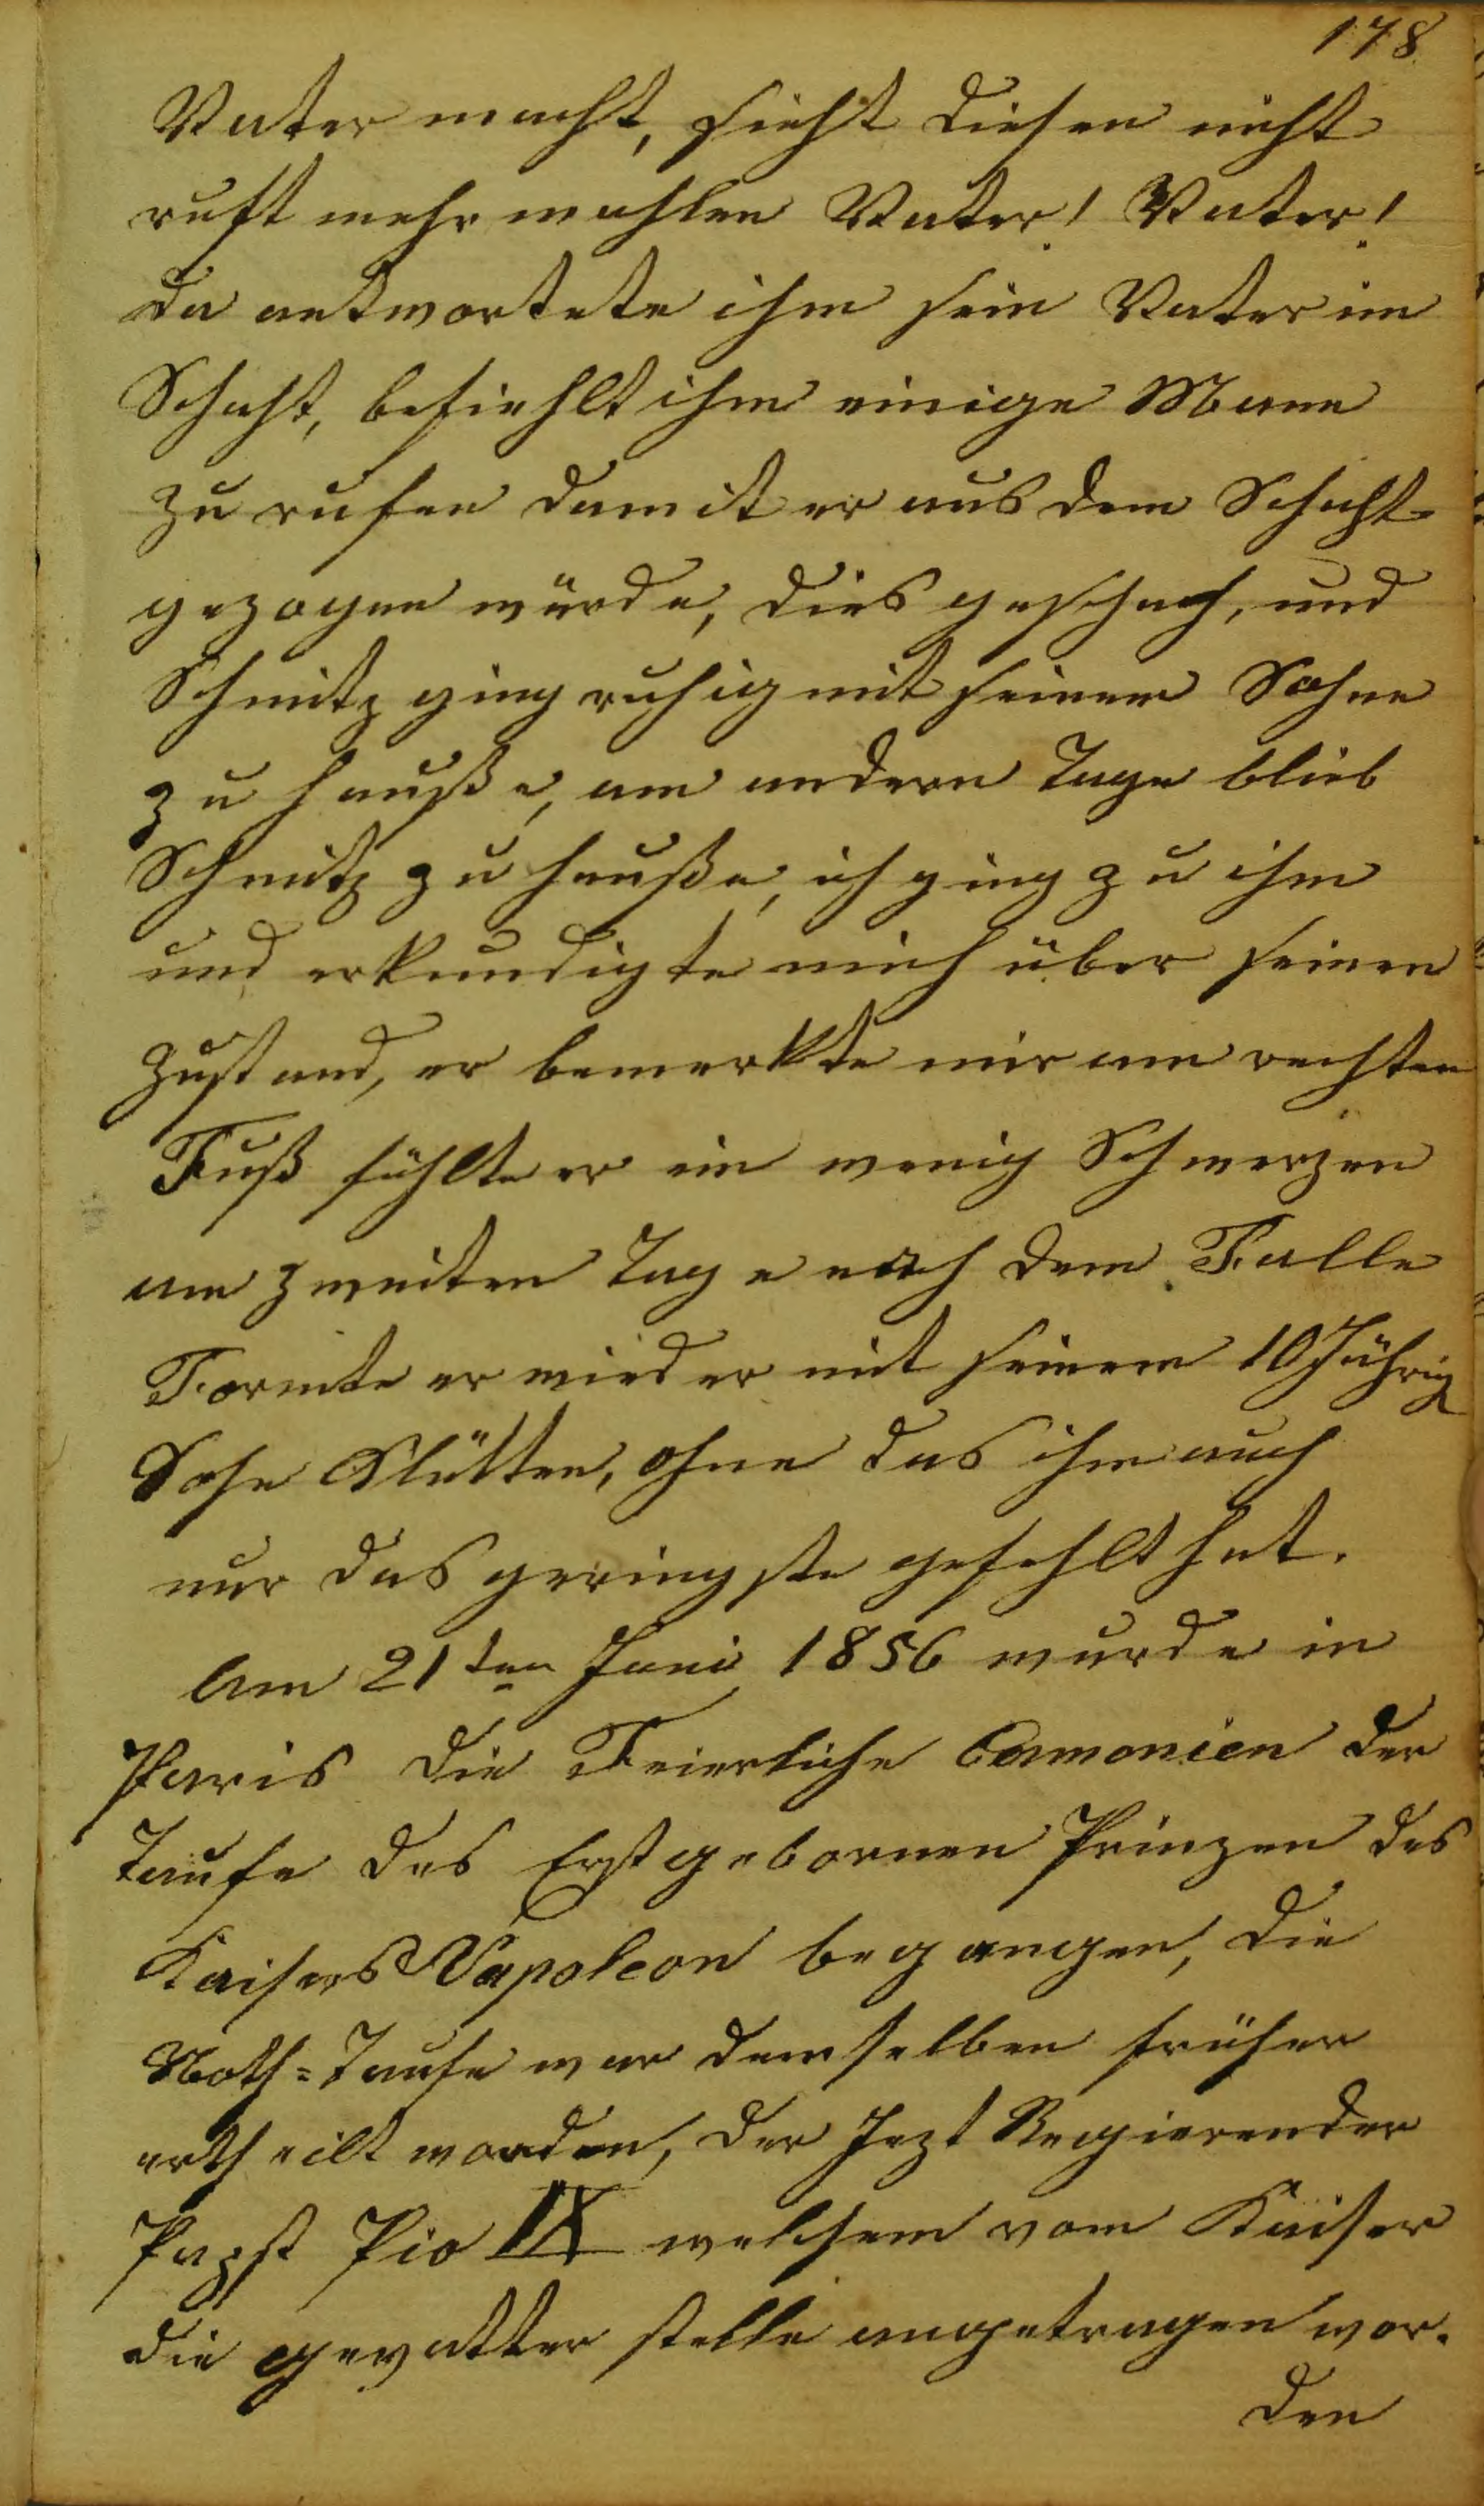 178
Vater macht, sieht diesen nicht
ruft mehrmahlen Vater! Vater!
da antwortete ihm sein Vater im
Schaht, befiehlt ihm einige Mann
zu rufen damit er aus dem Schaht
gezogen würde, dies geschach, und
Schmitz ging ruhig mit seinem Sohne
zu hauße, am andern Tage blieb
Schmitz zu hauße, ich ging zu ihm
und erkundigte mich über seinen
Zustand, er bemerkte mir am rechten
Fuß fühlte er ein wenig Schmerzen
am zweiten Tage nach dem Falle
Formte er wieder mit seinem 10 Jährig
Sohn Klütten, ohne das ihm auch
nur das geringste gefehlt hat.
Am 21ten Juni 1856 wurde in
Paris die Feierliche Ceremonien der
Taufe des Erstgebornen Prinzen des
Kaisers Napoleon begangen, die
Noth=Taufe war demselben früher
ertheilt worden, der Jezt Regierender
Papst Pio IX welchem vom Kaiser
die gevatter stelle angetragen wor.
den